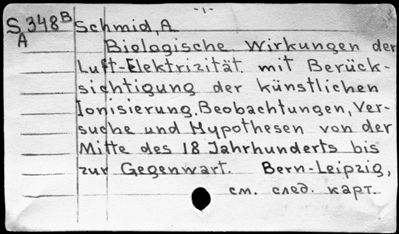 -1-
S 348B Schmid, A
A
Biologische Wirkungen der
Luft-Elektrizität mit Berück-
sichtigung der künstlichen
Ionisierung. Beobachtungen, Ver-
suche und Hypothesen von der
Mitte des 18 Jahrhunderts bis
zur Gegenwart. Bern-Leipzig,
см. след. карт.